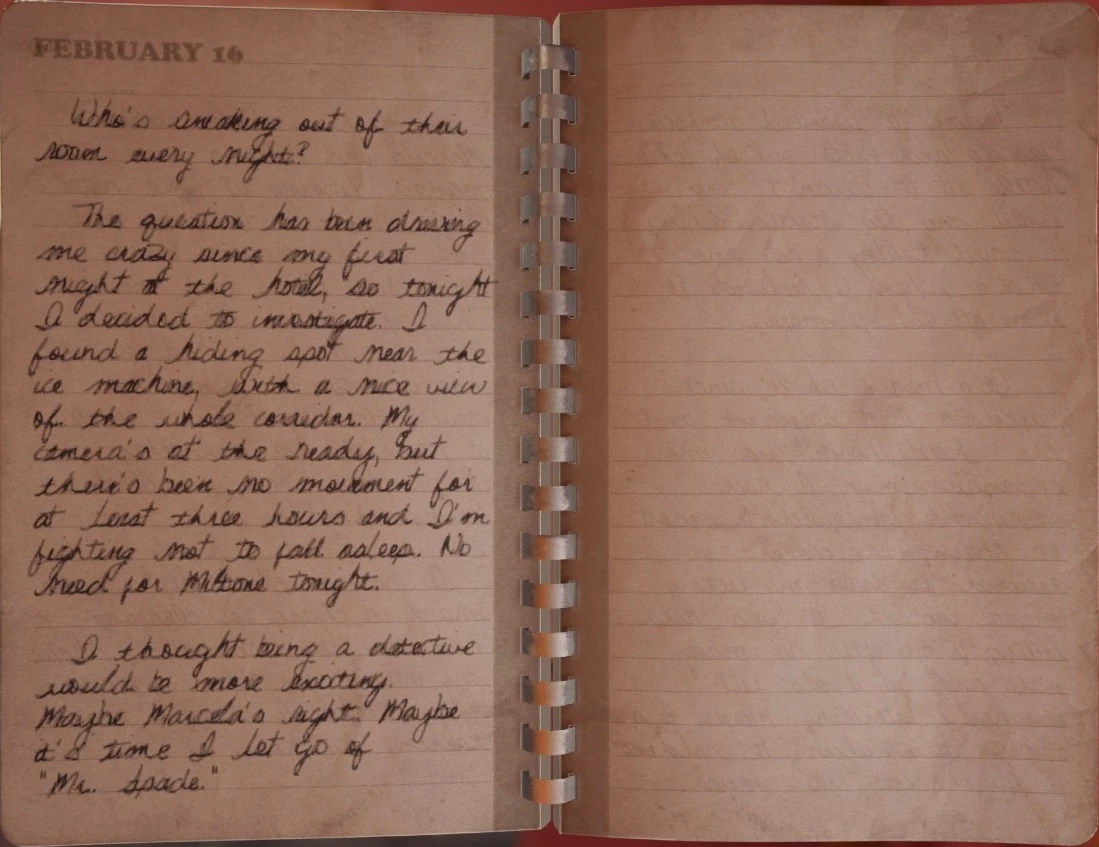 FEBRUARY 16
Who's sneaking out of their
room every night?
The question has been driving
me crazy since my first
night at the hotel, so tonight
I decided to investigate. I
found a hiding spot near the
ice machine, with a nice view
of the whole corridor. My
camera's at the ready, but
there's been no movement for
at least three hours and I'm
fighting not to fall asleep. No
need for Miltone tonight.
I thought being a detective
would be more exciting.
Maybe Marcela's right. Maybe
it's time I let go of
"Mr. Spade."